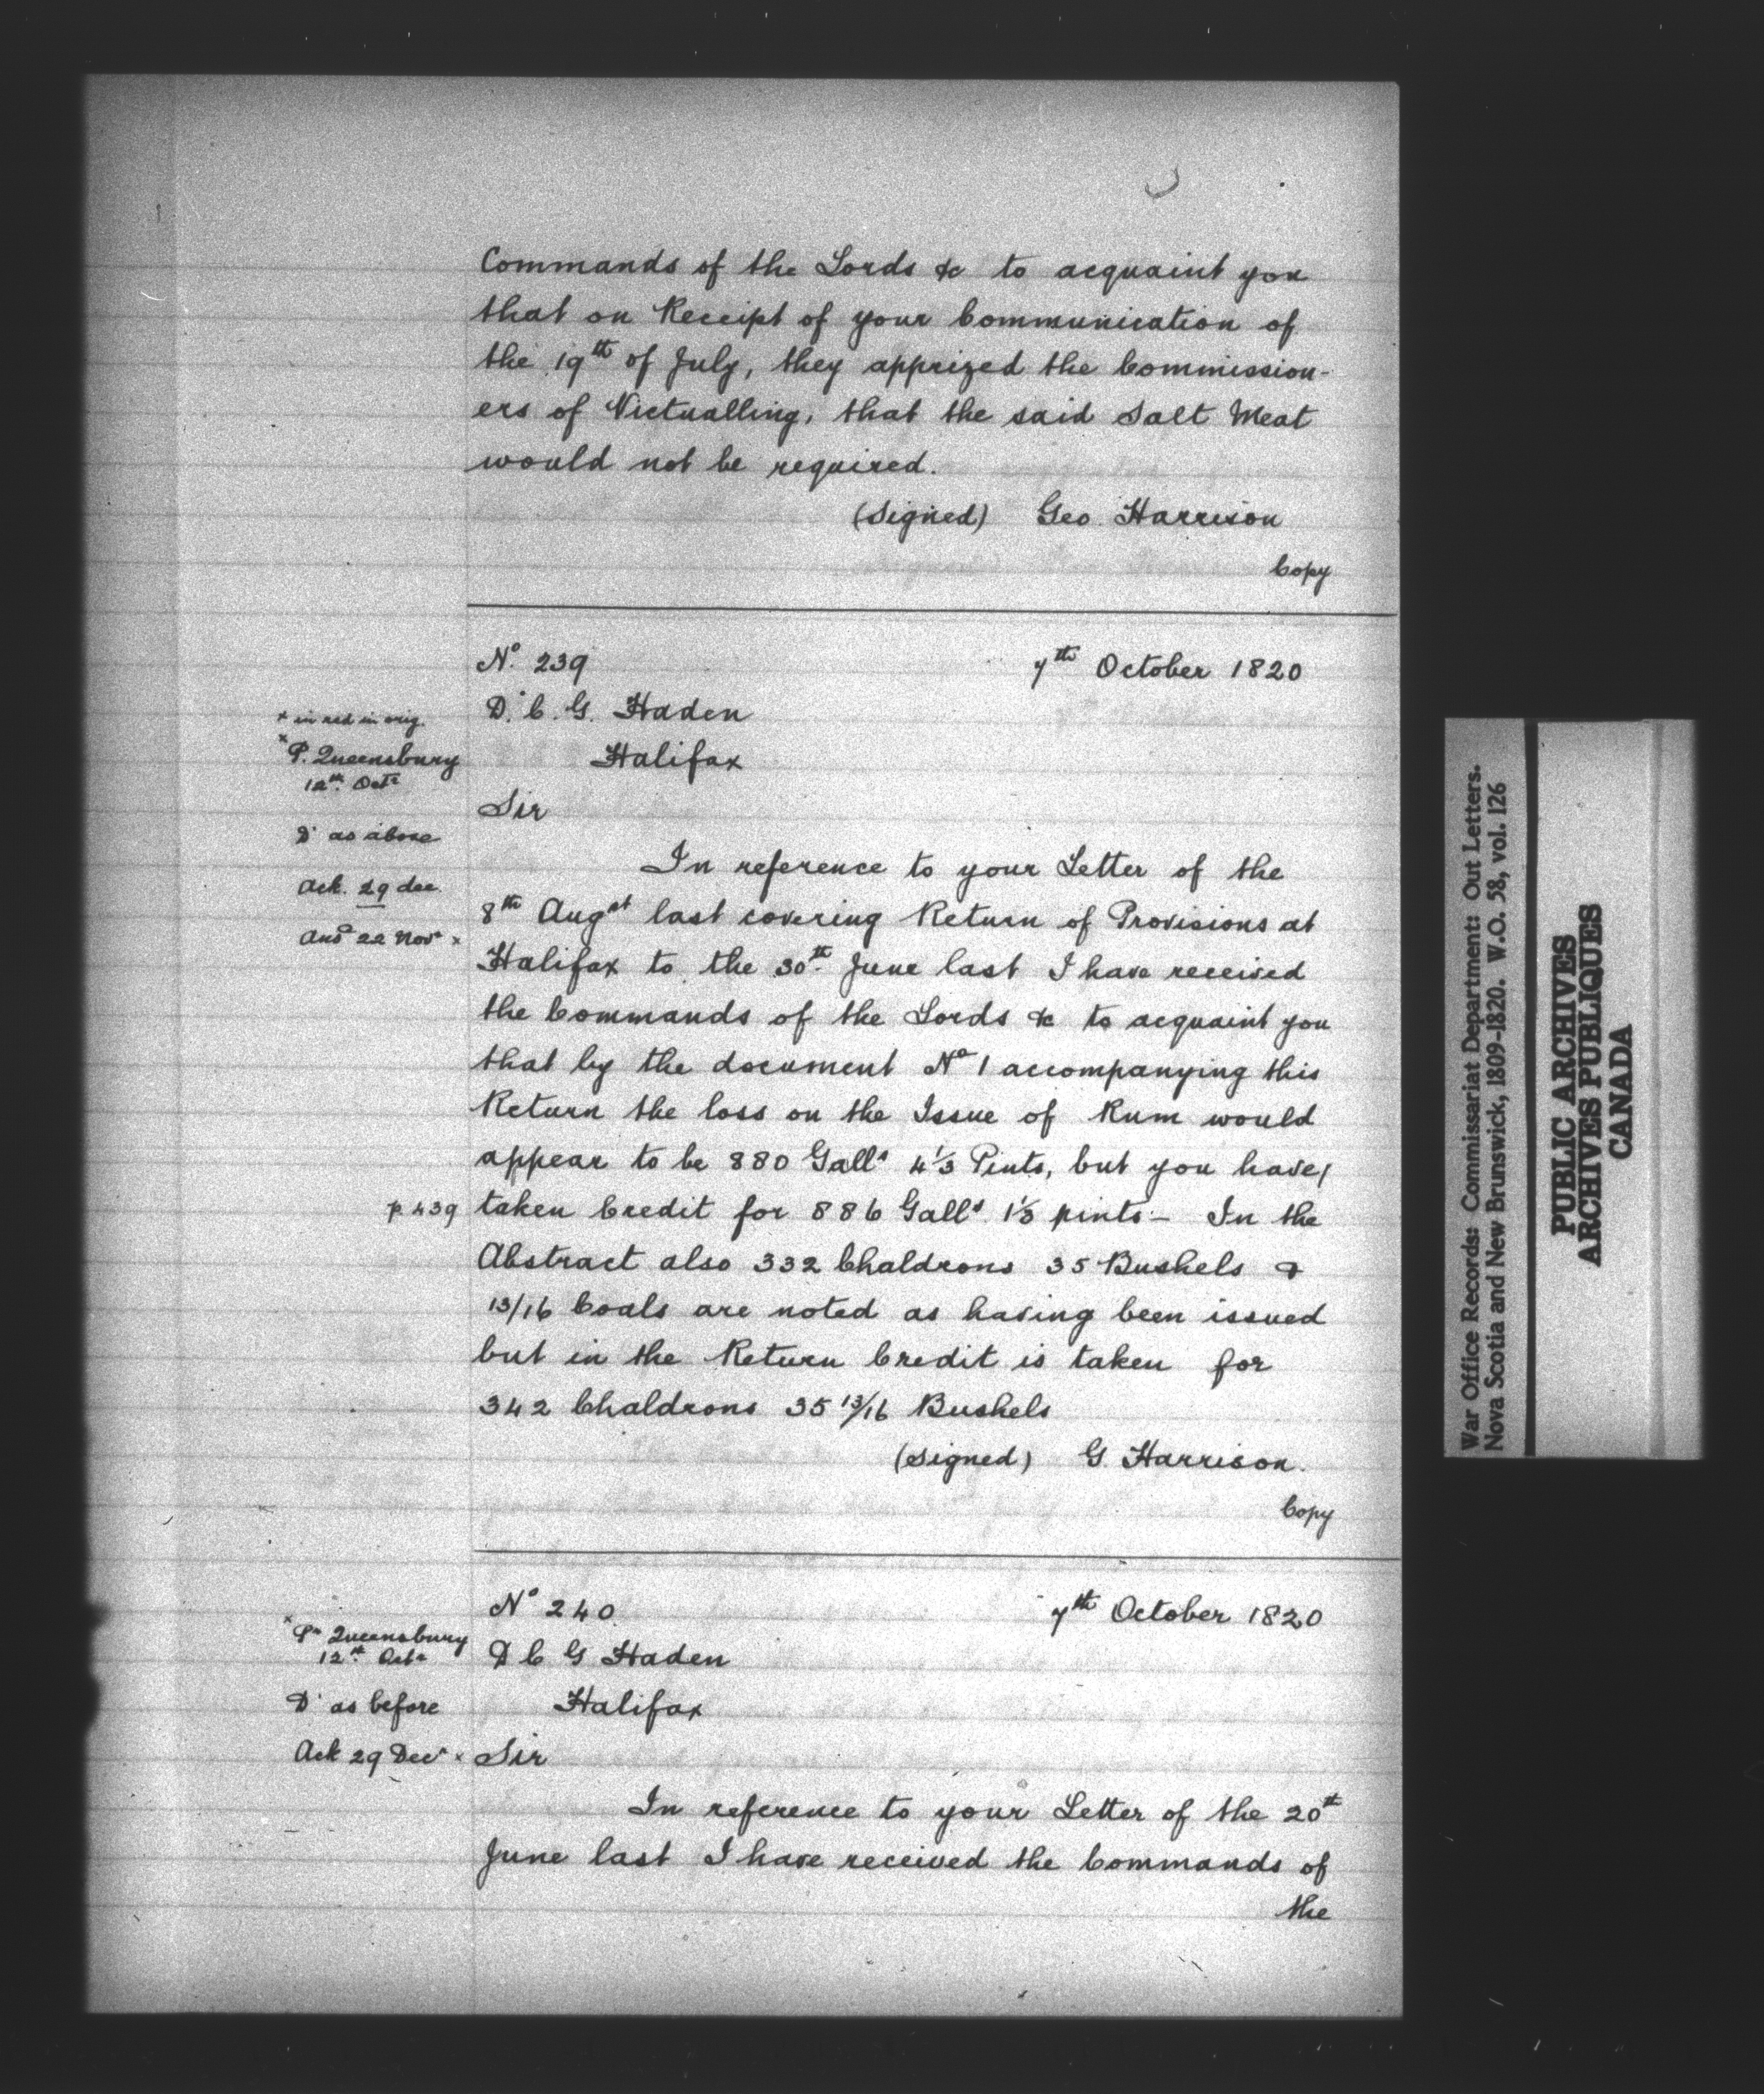 Commands of the Lords &c to acquaint you
that on Receipt of your Communication of
the 19th of July, they apprized the Commission-
ers of Victualling, that the said Salt Meat
would not be required.
(Signed) Geo Harrison
Copy
No. 239 7th October 1820
D. C. G. Haden
Halifax
Sir
In reference to your Letter of the
8th Augst last covering Return of Provisions at
Halifax to the 30th June last I have received
the Commands of the Lords &c to acquaint you
that by the document No 1 accompanying this
Return the loss on the Issue of Rum would
appear to be 880 Galls 4 1/3 Pints, but you have
p 439 taken Credit for 886 Galls 1 1/3 pints - In the
Abstract also 332 Chaldrons 35 Bushels &
13/16 Coals are noted as having been issued
but in the Return Credit is taken for
342 Chaldrons 35 13/16 Bushels
(Signed) G. Harrison.
Copy
x in red in orig.
x P. Queensbury
12th Octr
D as above
Ack. 29 dec.
Ansd 22 Novr x
No 240 7th October 1820
D C G Haden
Halifax
Sir
In reference to your Letter of the 20th
June last I have received the Commands of
the
x Pr Queensbury
12th Octr
D as before
Ack 29 Decr x
War Office Records: Commissariat Department: Out Letters.
Nova Scotia and New Brunswick, 1809-1820. W.O. 58, vol. 126
PUBLIC ARCHIVES
ARCHIVES PUBLIQUES
CANADA